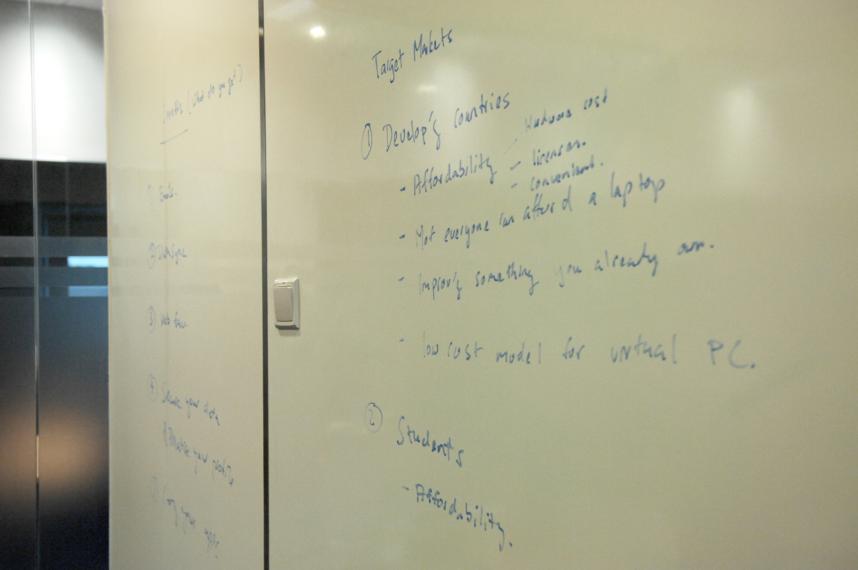 (What do you get?)
①
②
③ Web
④ Secure your data
your
your apps
Target Markets
① Develop'g countries
- Affordability - Hardware cost
- licenses.
- convenient.
- Not everyone can afford a laptop
- Improv'g something you already own.
- low cost model for virtual PC.
② Students
- Affordability.